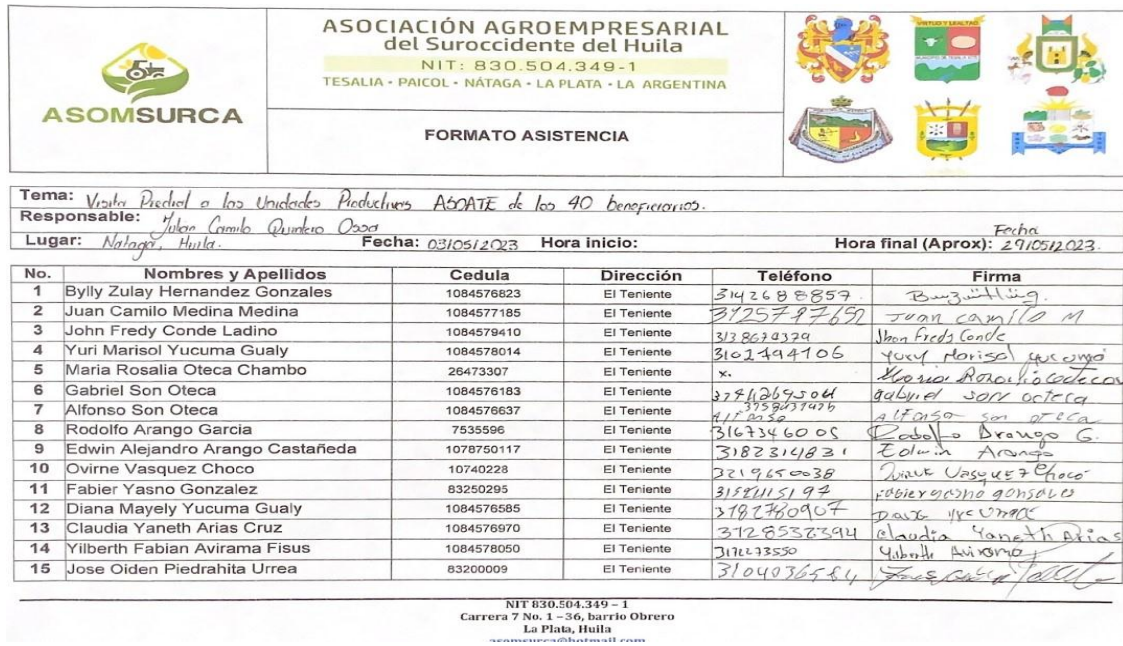 ASOMSURCA
ASOCIACIÓN AGROEMPRESARIAL
del Suroccidente del Huila
NIT: 830.504.349-1
TESALIA - PAICOL - NÁTAGA - LA PLATA - LA ARGENTINA
FORMATO ASISTENCIA
VIRTUD Y LEALTAD
Tema: Visita Predial a las Unidades Productivas ASOATE de los 40 beneficiarios.
Responsable: Julian Camilo Quintero Ossa
Lugar: Nataga, Huila. Fecha: 03/05/2023 Hora inicio: Hora final (Aprox): Fecha 29/05/2023.
No. Nombres y Apellidos Cedula Dirección Teléfono Firma
1 Bylly Zulay Hernandez Gonzales 1084576823 El Teniente 3142688857
2 Juan Camilo Medina Medina 1084577185 El Teniente Juan camilo M
3 John Fredy Conde Ladino 1084579410 El Teniente Jhon Fredy Conde
4 Yuri Marisol Yucuma Gualy 1084578014 El Teniente 3102494106 Yury Marisol yucuma
5 Maria Rosalia Oteca Chambo 26473307 El Teniente x.
6 Gabriel Son Oteca 1084576183 El Teniente gabriel son octeca
7 Alfonso Son Oteca 1084576637 El Teniente Alfonso son oteca
8 Rodolfo Arango Garcia 7535596 El Teniente 3167346005 Rodolfo Arango G.
9 Edwin Alejandro Arango Castañeda 1078750117 El Teniente 3182314831 Edwin Arango
10 Ovirne Vasquez Choco 10740228 El Teniente 3219650038 Vasquez Choco
11 Fabier Yasno Gonzalez 83250295 El Teniente Fabier yasno gonsales
12 Diana Mayely Yucuma Gualy 1084576585 El Teniente 3182780907
13 Claudia Yaneth Arias Cruz 1084576970 El Teniente 3128532394 Claudia Yaneth Arias
14 Yilberth Fabian Avirama Fisus 1084578050 El Teniente 3172273550 Yilberth Avirama
15 Jose Oiden Piedrahita Urrea 83200009 El Teniente 3104036584
NIT 830.504.349 – 1
Carrera 7 No. 1 – 36, barrio Obrero
La Plata, Huila
asomsurca@hotmail.com